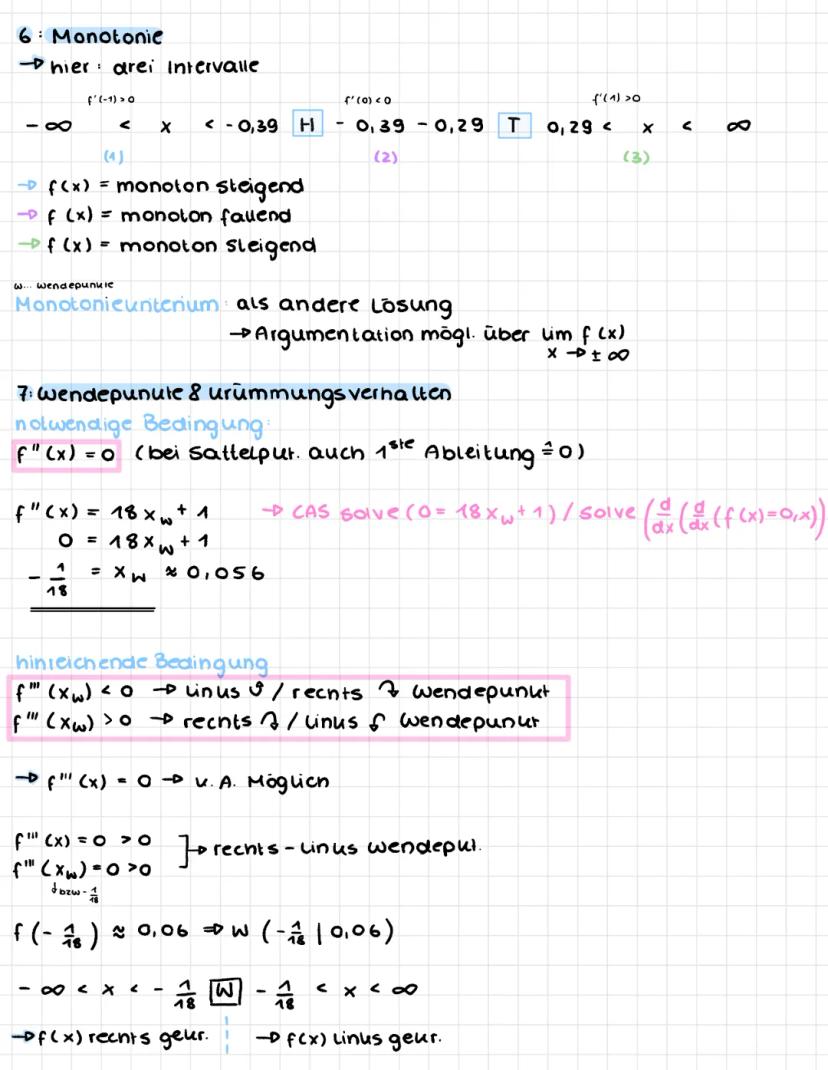 6: Monotonie
→ hier: drei Intervalle
f'(-1)>0 f'(0)<0 f'(1)>0
-∞ < x < -0,39 H -0,39 - 0,29 T 0,29 < x < ∞
(1) (2) (3)
→ f(x) = monoton steigend
→ f(x) = monoton fallend
→ f(x) = monoton steigend
w... wendepunkte
Monotoniekriterium: als andere Lösung
→ Argumentation mögl. über lim f(x)
x → ±∞
7: Wendepunkte & Krümmungsverhalten
notwendige Bedingung:
f''(x) = 0 (bei Sattelpkt. auch 1ste Ableitung ≙ 0)
f''(x) = 18x_w + 1 → CAS solve(0 = 18x_w + 1) / solve(d/dx(d/dx(f(x)=0,x))
0 = 18x_w + 1
-1/18 = x_w ≈ 0,056
hinreichende Bedingung
f'''(x_w) < 0 → links ↺ / rechts ↷ Wendepunkt
f'''(x_w) > 0 → rechts ↷ / links ↺ Wendepunkt
→ f'''(x) = 0 → k.A. Möglich
f'''(x) = 0 > 0
→ rechts-links Wendepkt.
f'''(x_w) = 0 > 0
↓ bzw -1/18
f(-1/18) ≈ 0,06 ⇒ W(-1/18 | 0,06)
-∞ < x < -1/18 W -1/18 < x < ∞
→ f(x) rechts gekr. → f(x) links gekr.